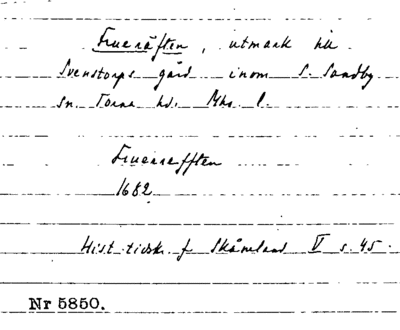 Frueräften, utmark till
Svenstorps gård inom S. Sandby
sn. Torna hd. Mhs. l.
Frueræfften
1682
Hist. tidskr. f Skåneland V s. 45.
Nr 5850.